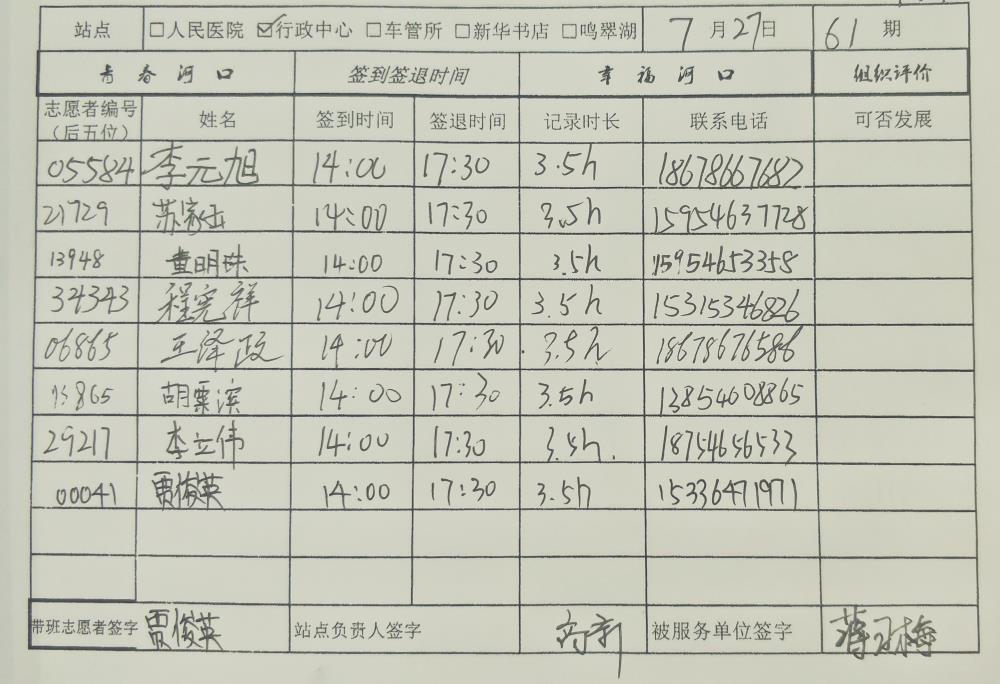 站点 □人民医院 ☑行政中心 □车管所 □新华书店 □鸣翠湖 7月27日 61期
青春河口 签到签退时间 幸福河口 组织评价
志愿者编号（后五位） 姓名 签到时间 签退时间 记录时长 联系电话 可否发展
05584 李元旭 14:00 17:30 3.5h 18678667682
21729 苏家 14:00 17:30 3.5h 15954637728
13948 董明珠 14:00 17:30 3.5h 15954653358
34343 程宪祥 14:00 17:30 3.5h 15315346826
06865 王泽政 14:00 17:30 3.5h 18678676586
13865 胡票滨 14:00 17:30 3.5h 13854608865
29217 李立伟 14:00 17:30 3.5h. 18754656533
00041 贾俊英 14:00 17:30 3.5h 15336471971
带班志愿者签字 贾俊英 站点负责人签字 被服务单位签字